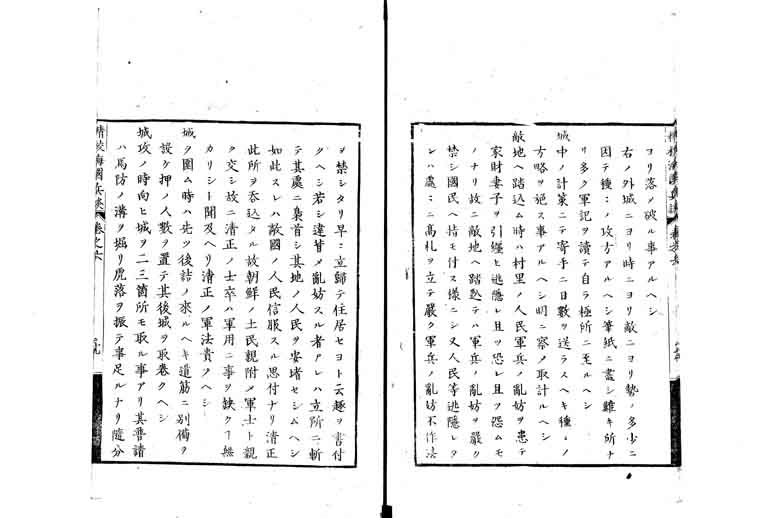 コリ落ノ破ル事アルヘシ
右ノ外城ニヨリ時ニヨリ敵ニヨリ勢ノ多少ニ
因テ種〻ノ攻方アルヘシ筆紙ニ盡シ難キ所ナ
リ多ク軍記ヲ讀テ自ラ極所ニ至ルヘシ
城中ノ計策ニテ寄手ニ日數ヲ送ラスヘキ種〻ノ
方略ヲ施ス事アルヘシ明ニ察ノ取計ルヘシ
敵地ヘ踏込ム時ハ村里ノ人民軍兵ノ亂妨ヲ患テ
家財妻子ヲ引纏ヒ逃隱レ且ツ恐レ且ツ怨ムモ
ノナリ故ニ敵地ヘ踏込テハ軍兵ノ亂妨ヲ嚴ク
禁シ國民ヘ指モ付ス樣ニシ又人民等逃隱レタ
ラハ處〻ニ高札ヲ立テ嚴ク軍兵ノ亂妨不作法
ヲ禁シタリ早〻立歸テ住居セヨト云趣ヲ書付
クヘシ若シ違背メ亂妨スル者アレハ立所ニ斬
テ其處ニ梟首シ其地ノ人民ヲ安堵セシムヘシ
如此スレハ敵國ノ人民信服スル思付ナリ清正
此所ヲ呑込タル故朝鮮ノ土民親附メ軍士ト親
ク交シ故ニ清正ノ士卒ハ軍用ニ事ヲ缺ク丁無
カリシト聞及ヘリ清正ノ軍法貴フヘシ
城ヲ圍ム時ハ先ツ後詰ノ來ルヘキ道筋ニ別備ヲ
設ケ押ノ人數ヲ置テ其後城ヲ取卷クヘシ
城攻ノ時向ヒ城ヲ二三箇所モ取ル事アリ其普請
ハ馬防ノ溝ヲ堀リ虎落ヲ振テ事足ルナリ隨分
精校海國兵談 卷之六